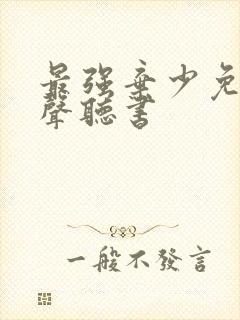 最强弃少免
聲聽書
一般不發言